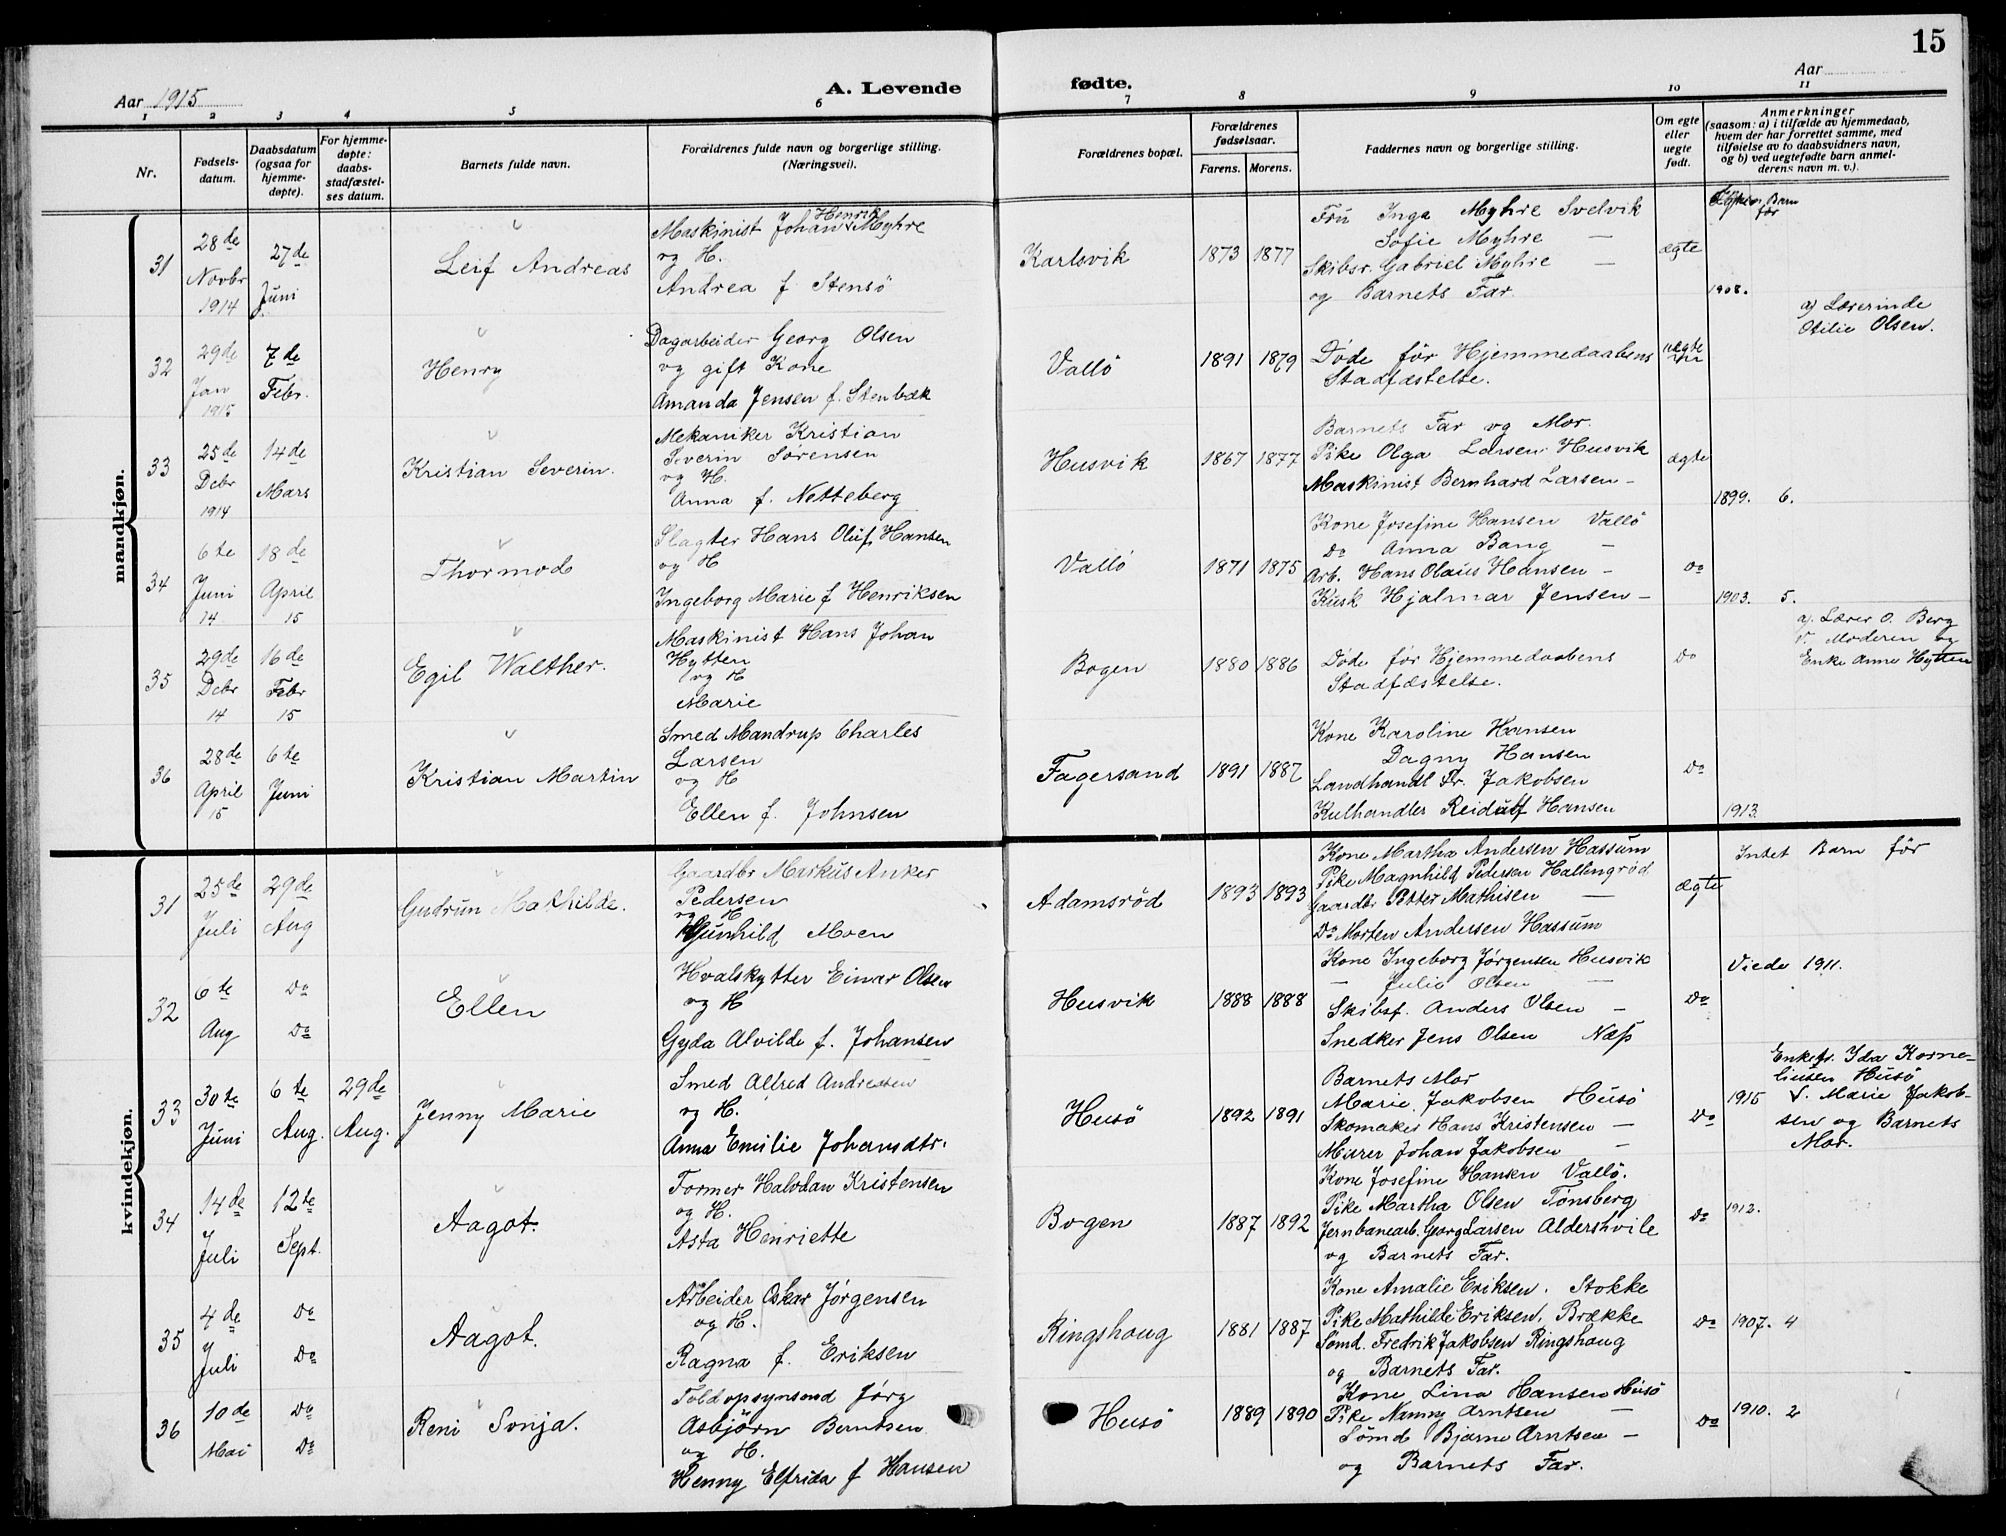 15
Aar 1915
A. Levende
fødte.
Aar
1 2 3 4 5 6 7 8 9 10 11
Nr.
Fødsels-
datum.
Daabsdatum
(ogsaa for
hjemme-
døpte).
For hjemme-
døpte:
daabs-
stadfæstel-
ses datum.
Barnets fulde navn.
Forældrenes fulde navn og borgerlige stilling.
(Næringsvei).
Forældrenes bopæl.
Forældrenes
fødselsaar.
Farens. Morens.
Faddernes navn og borgerlige stilling.
Om egte
eller
uegte
født.
Anmerkninger
(saasom: a) i tilfælde av hjemmedaab,
hvem der har forrettet samme, med
tilføielse av to daabsvidners navn,
og b) ved uegtefødte barn anmel-
derens navn m. v.).
mandkjøn.
31
28de
Novbr
1914
27de
Juni
Leif Andreas
Henrik
Maskinist Johan Myhre
og H.
Andrea f. Stensö
Karlsvik
1873 1877
Fru Inga Myhre Svelvik
Sofie Myhre —
Skibsr. Gabriel Myhre —
og Barnets Far.
ægte
Barn
før
1908.
32
29de
Jan
1915
7de
Febr.
Henry
Dagarbeider Georg Olsen
og gift Kone
Amanda Jensen f. Stenbæk
Vallö
1891 1879
Døde før Hjemmedaabens
Stadfæstelse.
uægte
a) Lærerinde
Otilie Olsen.
33
25de
Debr
1914
14de
Mars
Kristian Severin.
Mekaniker Kristian
Severin Sörensen
og H.
Anna f. Netteberg
Husvik
1867 1877
Barnets Far og Mor.
Pike Olga Larsen Husvik
Maskinist Bernhard Larsen –
ægte
1899. 6.
34
6te
Juni
14
18de
April
15
Thormod
Slagter Hans Oluf Hansen
og H
Ingeborg Marie f Henriksen
Vallö
1871 1875
Kone Josefine Hansen Vallö
Do Anna Bang —
Arb. Hans Olaus Hansen –
Kusk Hjalmar Jensen –
Do
1903. 5.
35
29de
Debr
14
16de
Febr
15
Egil Walther.
Maskinist Hans Johan
Hytten
og H
Marie
Bogen
1880 1886
Døde før Hjemmedaabens
Stadfæstelse.
Do
a). Lærer O. Berg
V. Moderen og
Enke Anne Hytten
36
28de
April
15
6te
Juni
Kristian Martin
Smed Mandrup Charles
Larsen
og H
Ellen f. Johnsen
Fagersand
1891 1887
Kone Karoline Hansen
Dagny Hansen
Landhandl Fr. Jakobsen
Kulhandler Reidulf Hansen
Do
1913.
kvindekjøn.
31
25de
Juli
29de
Aug
Gudrun Mathilde.
Gaardbr Markus Anker
Pedersen
og H
Gunhild Moen
Adamsröd
1893 1893
Kone Martha Andersen Hassum
Pike Magnhild Pedersen Hallingröd
Gaardbr Petter Mathisen —
Do Morten Andersen Hassum
ægte
Intet Barn før
32
6te
Aug
Do
Do
Ellen
Hvalskytter Einar Olsen
og H
Gyda Alvilde f. Johansen
Husvik
1888 1888
Kone Ingeborg Jørgensen Husvik
— Julie Olsen —
Skibsf. Anders Olsen –
Snedker Jens Olsen Næss
Do
Viede 1911.
33
30te
Juni
6te
Aug.
29de
Aug.
Jenny Marie
Smed Alfred Andreasen
og H.
Anna Emilie Johansdtr.
Husö
1892 1891
Barnets Mor
Marie Jakobsen Husö
Skomaker Hans Kristensen —
Murer Johan Jakobsen —
Do
1915
Enkefr. Ida Korne-
liusen Husö
V. Marie Jakob-
sen og Barnets
Mor.
34
14de
Juli
12te
Sept.
Aagot.
Former Halvdan Kristensen
og H.
Asta Henriette
Bogen
1887 1892
Kone Josefine Hansen Vallö.
Pike Martha Olsen Tønsberg
Jernbanearb. Georg Larsen Aldershvile
og Barnets Far.
Do
1912.
35
4de
Juli
Do
Do
Aagot.
Arbeider Oskar Jørgensen
og H.
Ragna f. Eriksen
Ringshoug
1881 1887
Kone Amalie Eriksen. Stokke
Pike Mathilde Eriksen. Brække
Sömd. Fredrik Jakobsen Ringshoug
og Barnets Far.
Do
1907. 4
36
10de
Mai
Do
Do
Reni Sonja.
Toldopsynsmd Jörg
Asbjörn Berntsen
og H.
Henny Elfrida f Hansen
Husö
1889 1890
Kone Lina Hansen Husö
Pike Nanny Arntsen —
Sömd Bjarne Arntsen –
og Barnets Far.
Do
1910. 2